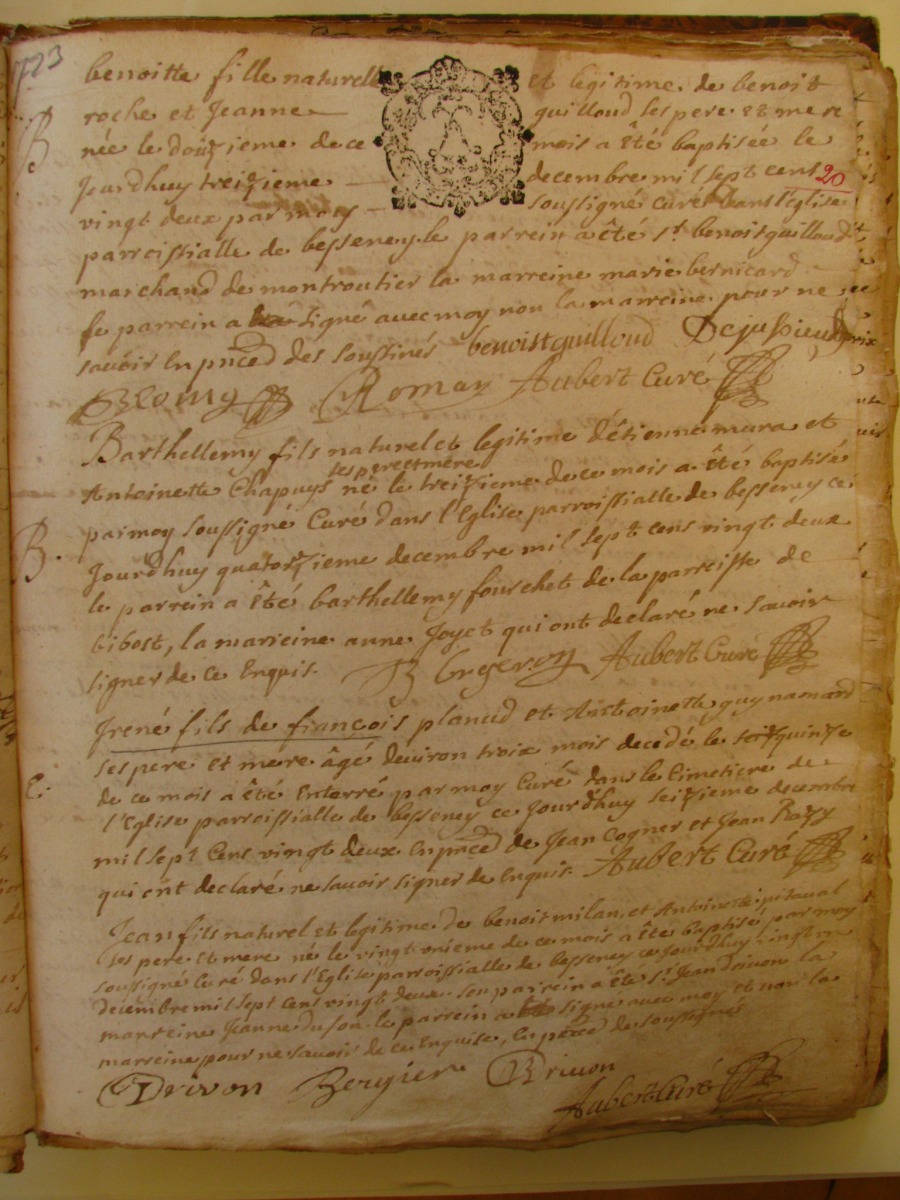 1723
benoitte fille naturelle et legitime de benoit
roche et Jeanne guilloud ses pere et mere
B née le douzieme de ce mois a été baptisée le
Jourdhuy treizieme decembre mil sept cens 20
vingt deux par moy soussigné curé dans l'Eglise
parroissialle de besseney. le parrein a été st. benoit guilloud
marchand de montroutier la marreine marie bernicard
le parrein a signé avec moy non la marreine pour ne
savoir en pnce des soussinés benoist guilloud Dejussieu
Romay Aubert Curé
Barthellemy fils naturel et legitime d'étienne mura et
ses pere et mere
Antoinette Chapuys né le treizieme de ce mois a été baptisé
par moy soussigné Curé dans l'Eglise parroissialle de besseney ce
B. Jourdhuy quatorzieme decembre mil sept cens vingt deux
le parrein a été barthellemy fourchet de la parroisse de
bibost, la marreine anne Joyet qui ont declaré ne savoir
signer de ce Enquis. Aubert Curé
Irené fils de françois planud et Antoinette guynamand
ses pere et mere âgé denviron troix mois decedé le quinze
E. de ce mois a été Enterré par moy Curé dans le Cimetiere de
l'Eglise parroissialle de besseney ce Jourdhuy seizieme decembre
mil sept Cens vingt deux En pnce de Jean Cogner et Jean Razy
qui ont declaré ne savoir signer de Enquis. Aubert Curé
Jean fils naturel et legitime de benoit milan, et Antoinette pitaval
ses pere et mere né le vingt unieme de ce mois a été baptisé par moy
soussigné Curé dans l'Eglise parroissialle de besseney ce Jourdhuy
decembre mil sept cens vingt deux. son parrein a été st. Jean drivon la
marreine Jeanne duson. le parrein a signé avec moy et non la
marreine pour ne savoir de ce Enquise, En pnce de soussignés
Drivon Bergier Drivon
Aubert Curé